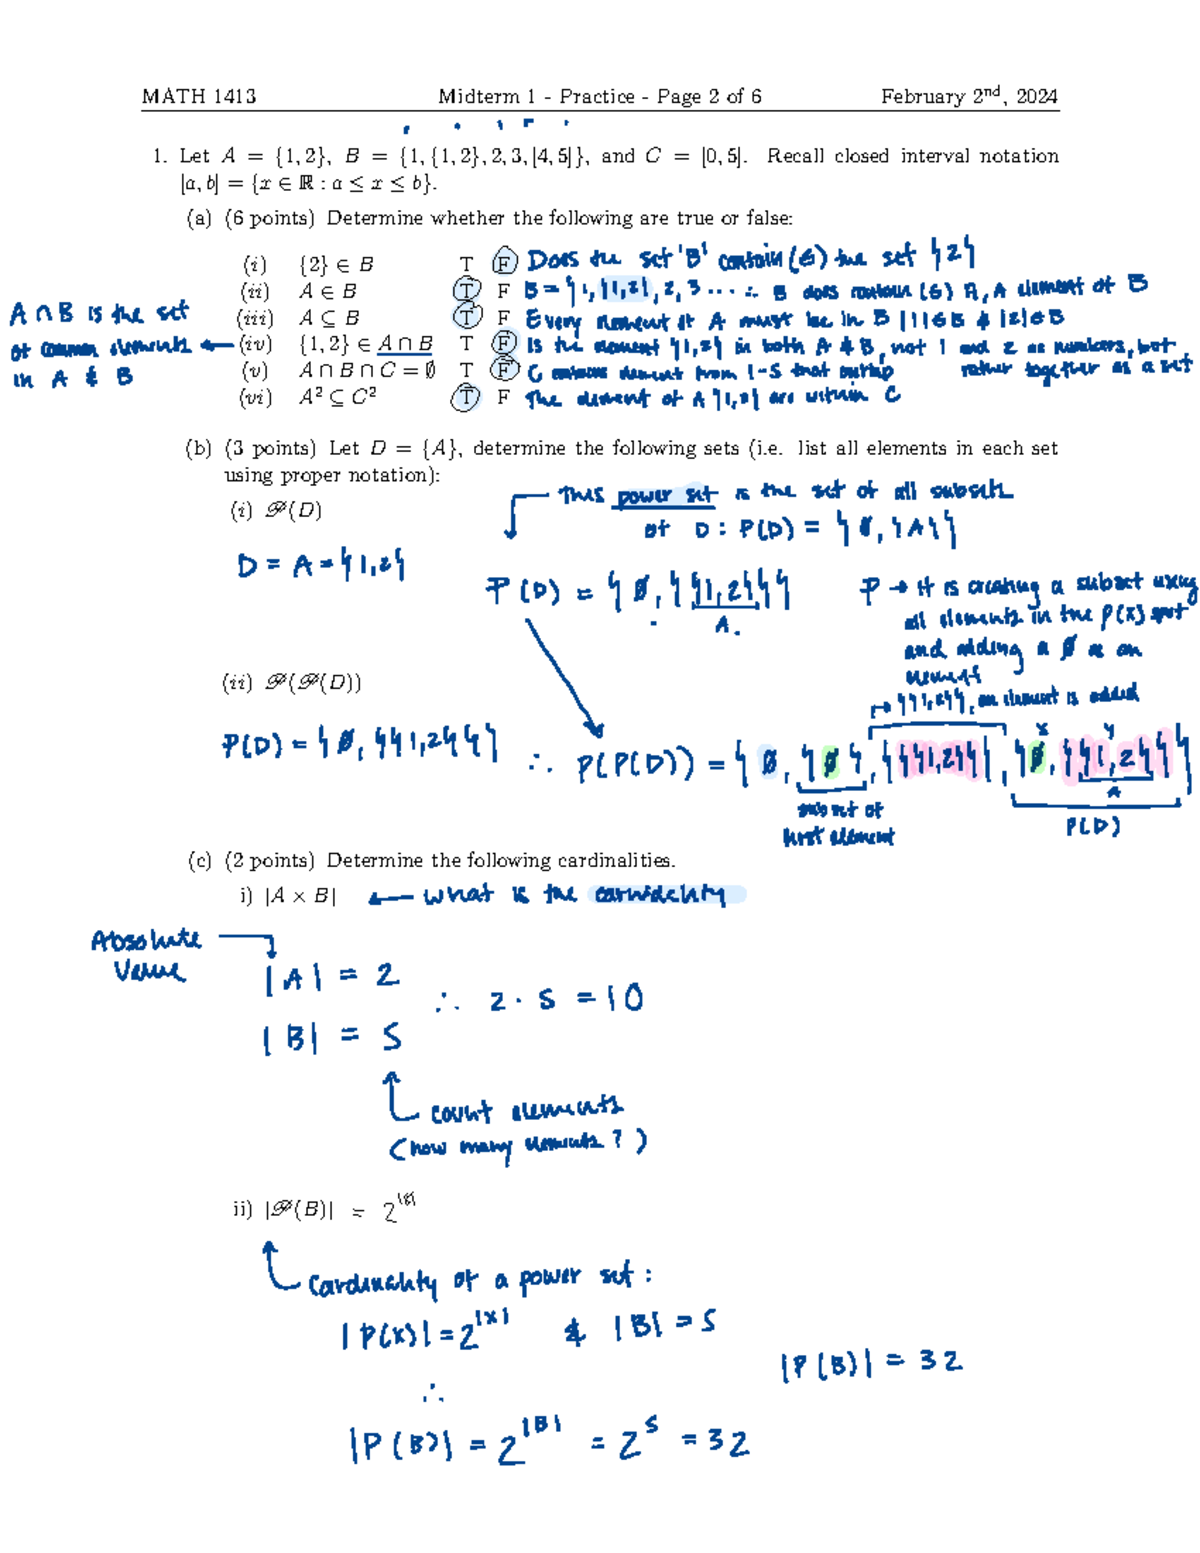 MATH 1413 Midterm 1 - Practice - Page 2 of 6 February 2nd, 2024
1. Let A = {1, 2}, B = {1, {1, 2}, 2, 3, [4, 5]}, and C = [0, 5]. Recall closed interval notation
[a, b] = {x ∈ ℝ : a ≤ x ≤ b}.
(a) (6 points) Determine whether the following are true or false:
(i) {2} ∈ B T F Does the set 'B' contain (∈) the set {2}
(ii) A ∈ B T F B = {1, {1,2}, 2, 3 ... ∴ B does contain (∈) A, A element of B
(iii) A ⊆ B T F Every element of A must be in B | 1 ∈ B & | 2 | ∈ B
A ∩ B is the set
of common elements
in A & B
(iv) {1, 2} ∈ A ∩ B T F Is the element {1,2} in both A & B, not 1 and 2 as numbers, but
rather together as a set
(v) A ∩ B ∩ C = ∅ T F C contains element from 1-5 that overlap
(vi) A² ⊆ C² T F The element of A {1,2} are within C
(b) (3 points) Let D = {A}, determine the following sets (i.e. list all elements in each set
using proper notation):
This power set is the set of all subsets
(i) 𝒫(D)
of D : P(D) = {∅, {A}}
D = A = {1,2}
P(D) = {∅, {{1,2}}}
A.
P → it is creating a subset using
all elements in the P(X) spot
and adding a ∅ as an
element
(ii) 𝒫(𝒫(D))
→ {{1,2}}, an element is added
P(D) = {∅, {{1,2}}}
∴ P(P(D)) = {∅, {∅}, {{{1,2}}}, {∅, {{1,2}}}}
x y
A
subset of
first element
P(D)
(c) (2 points) Determine the following cardinalities.
i) |A × B| ← What is the cardinality
Absolute
Value
|A| = 2
∴ 2 · 5 = 10
|B| = 5
count elements
(how many elements?)
ii) |𝒫(B)| = 2^|B|
Cardinality of a power set :
|P(X)| = 2^|X| & |B| = 5
|P(B)| = 32
∴
|P(B)| = 2^|B| = 2^5 = 32